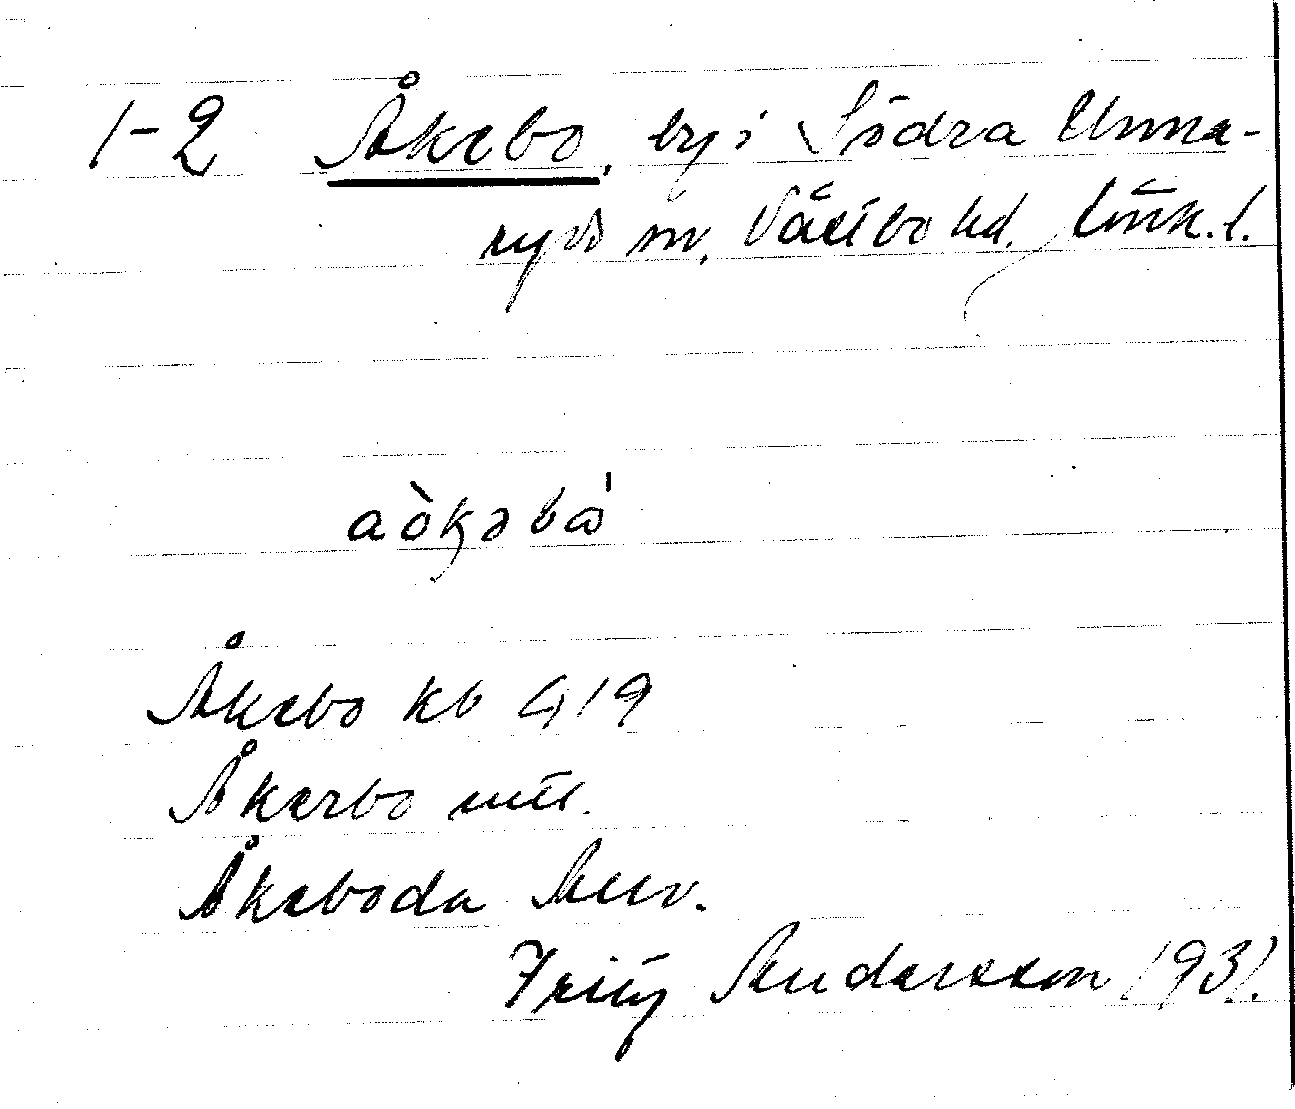 1-2 Åkebo, by i Södra Unna-
ryds sn, Västbo hd, Jönk. l.
aòkəbὼ
Åkebo kb 919
Åkerbo uttl.
Åkeboda Allv.
Fritz Andersson 1931.